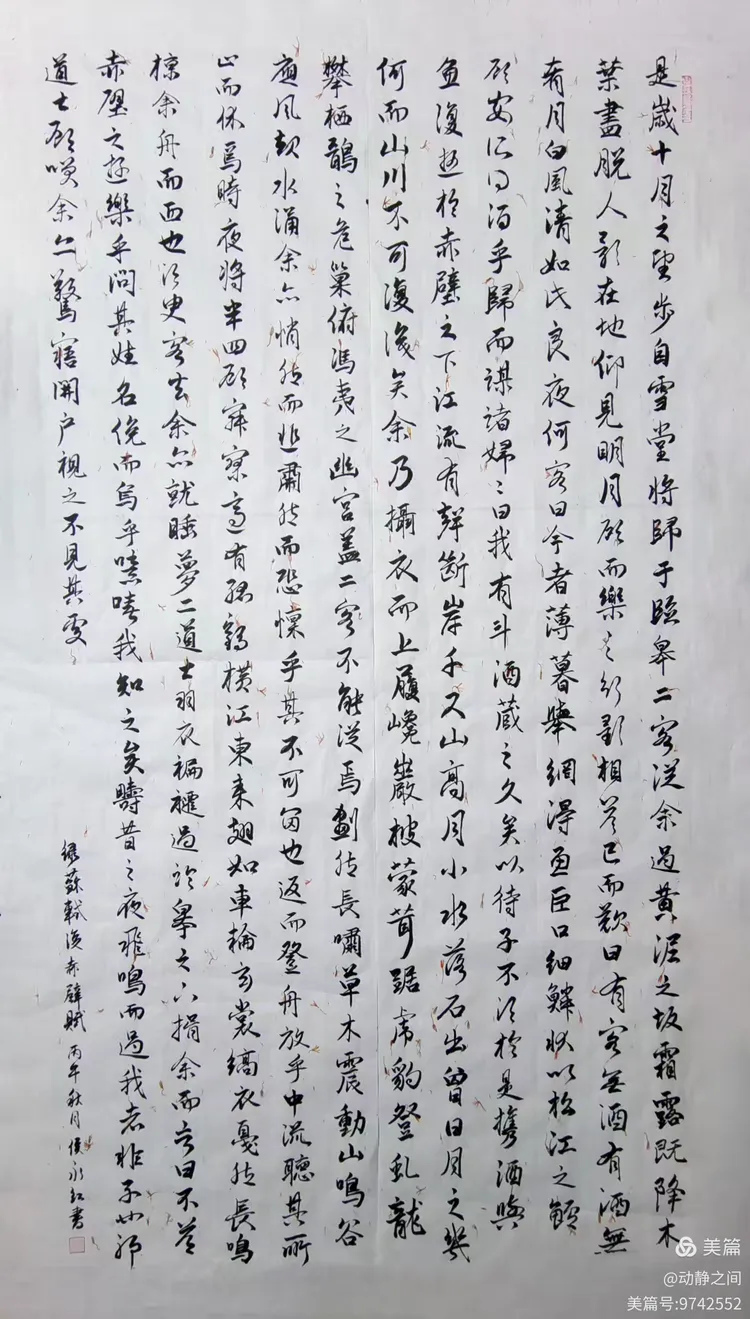 是歲十月之望步自雪堂將歸于臨皋二客從余過黃泥之坂霜露既降木
葉盡脫人影在地仰見明月顧而樂之行歌相答已而歎曰有客無酒有酒無
肴月白風清如此良夜何客曰今者薄暮舉網得魚巨口細鱗狀似松江之鱸
顧安所得酒乎歸而謀諸婦〻曰我有斗酒藏之久矣以待子不須於是攜酒與
魚復遊於赤壁之下江流有聲斷岸千尺山高月小水落石出曾日月之幾
何而山川不可復識矣余乃攝衣而上履巉巖披蒙茸踞虎豹登虬龍
攀栖鶻之危巢俯馮夷之幽宮蓋二客不能從焉劃然長嘯草木震動山鳴谷
應風起水涌余亦悄然而悲肅然而恐懍乎其不可留也返而登舟放乎中流聽其所
止而休焉時夜將半四顧寂寥適有孤鶴橫江東來翅如車輪玄裳縞衣戛然長鳴
掠余舟而西也須臾客去余亦就睡夢二道士羽衣翩躚過臨皋之下揖余而言曰不答
赤壁之遊樂乎問其姓名俛而烏乎噫嘻我知之矣疇昔之夜飛鳴而過我者非子也邪
道士顧笑余亦驚寤開戶視之不見其處
録蘇軾後赤壁賦 丙午秋月侯永红書
美篇
@动静之间
美篇号:9742552